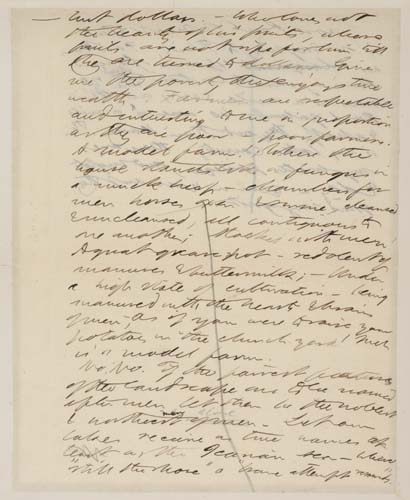 — but dollars. — Who loves not
the beauty of his fruits, whose
fruits are not ripe for him till
they are turned to dollars. Give
me the poverty that enjoys true
wealth. Farmers are respectable
and interesting to me in proportion
as they are poor — poor farmers.
A model farm! Where the
house stands like a fungus in
a muck heap — chambers for
men horses oxen & swine, cleansed
& uncleansed, all contiguous to
one another; Stocked with men!
A great grease spot — redolent of
manures & buttermilk; — Under
a high state of cultivation — being
manured with the hearts & brains
of men; As if you were to raise your
potatoes in the church yard! Such
is a model farm.
No. No. If the fairest features
of the landscape are to be named
after men let them be the noblest
& worthiest men alone. Let our
lakes receive as true names at
least as the Icarian sea — where
"still the shore" a brave attempt resounds,